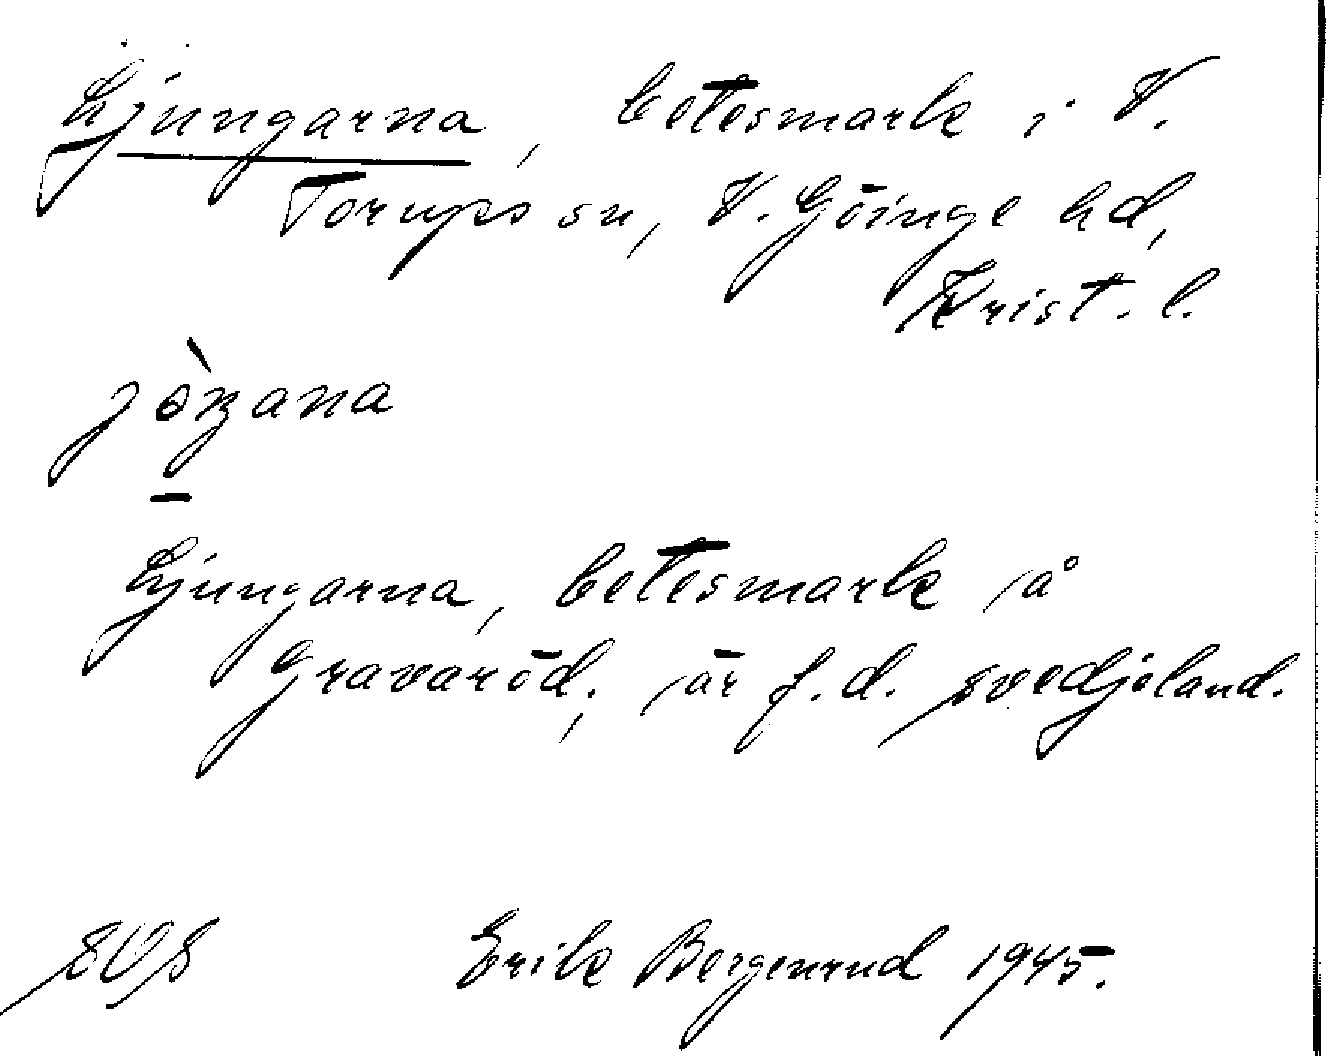 Ljungarna, betesmark i V.
Torups sn, V. Göinge hd,
Krist. l.
jòŋana
Ljungarna, betesmark å
Gravaröd, är f.d. svedjeland.
Erik Bergenrud 1945.